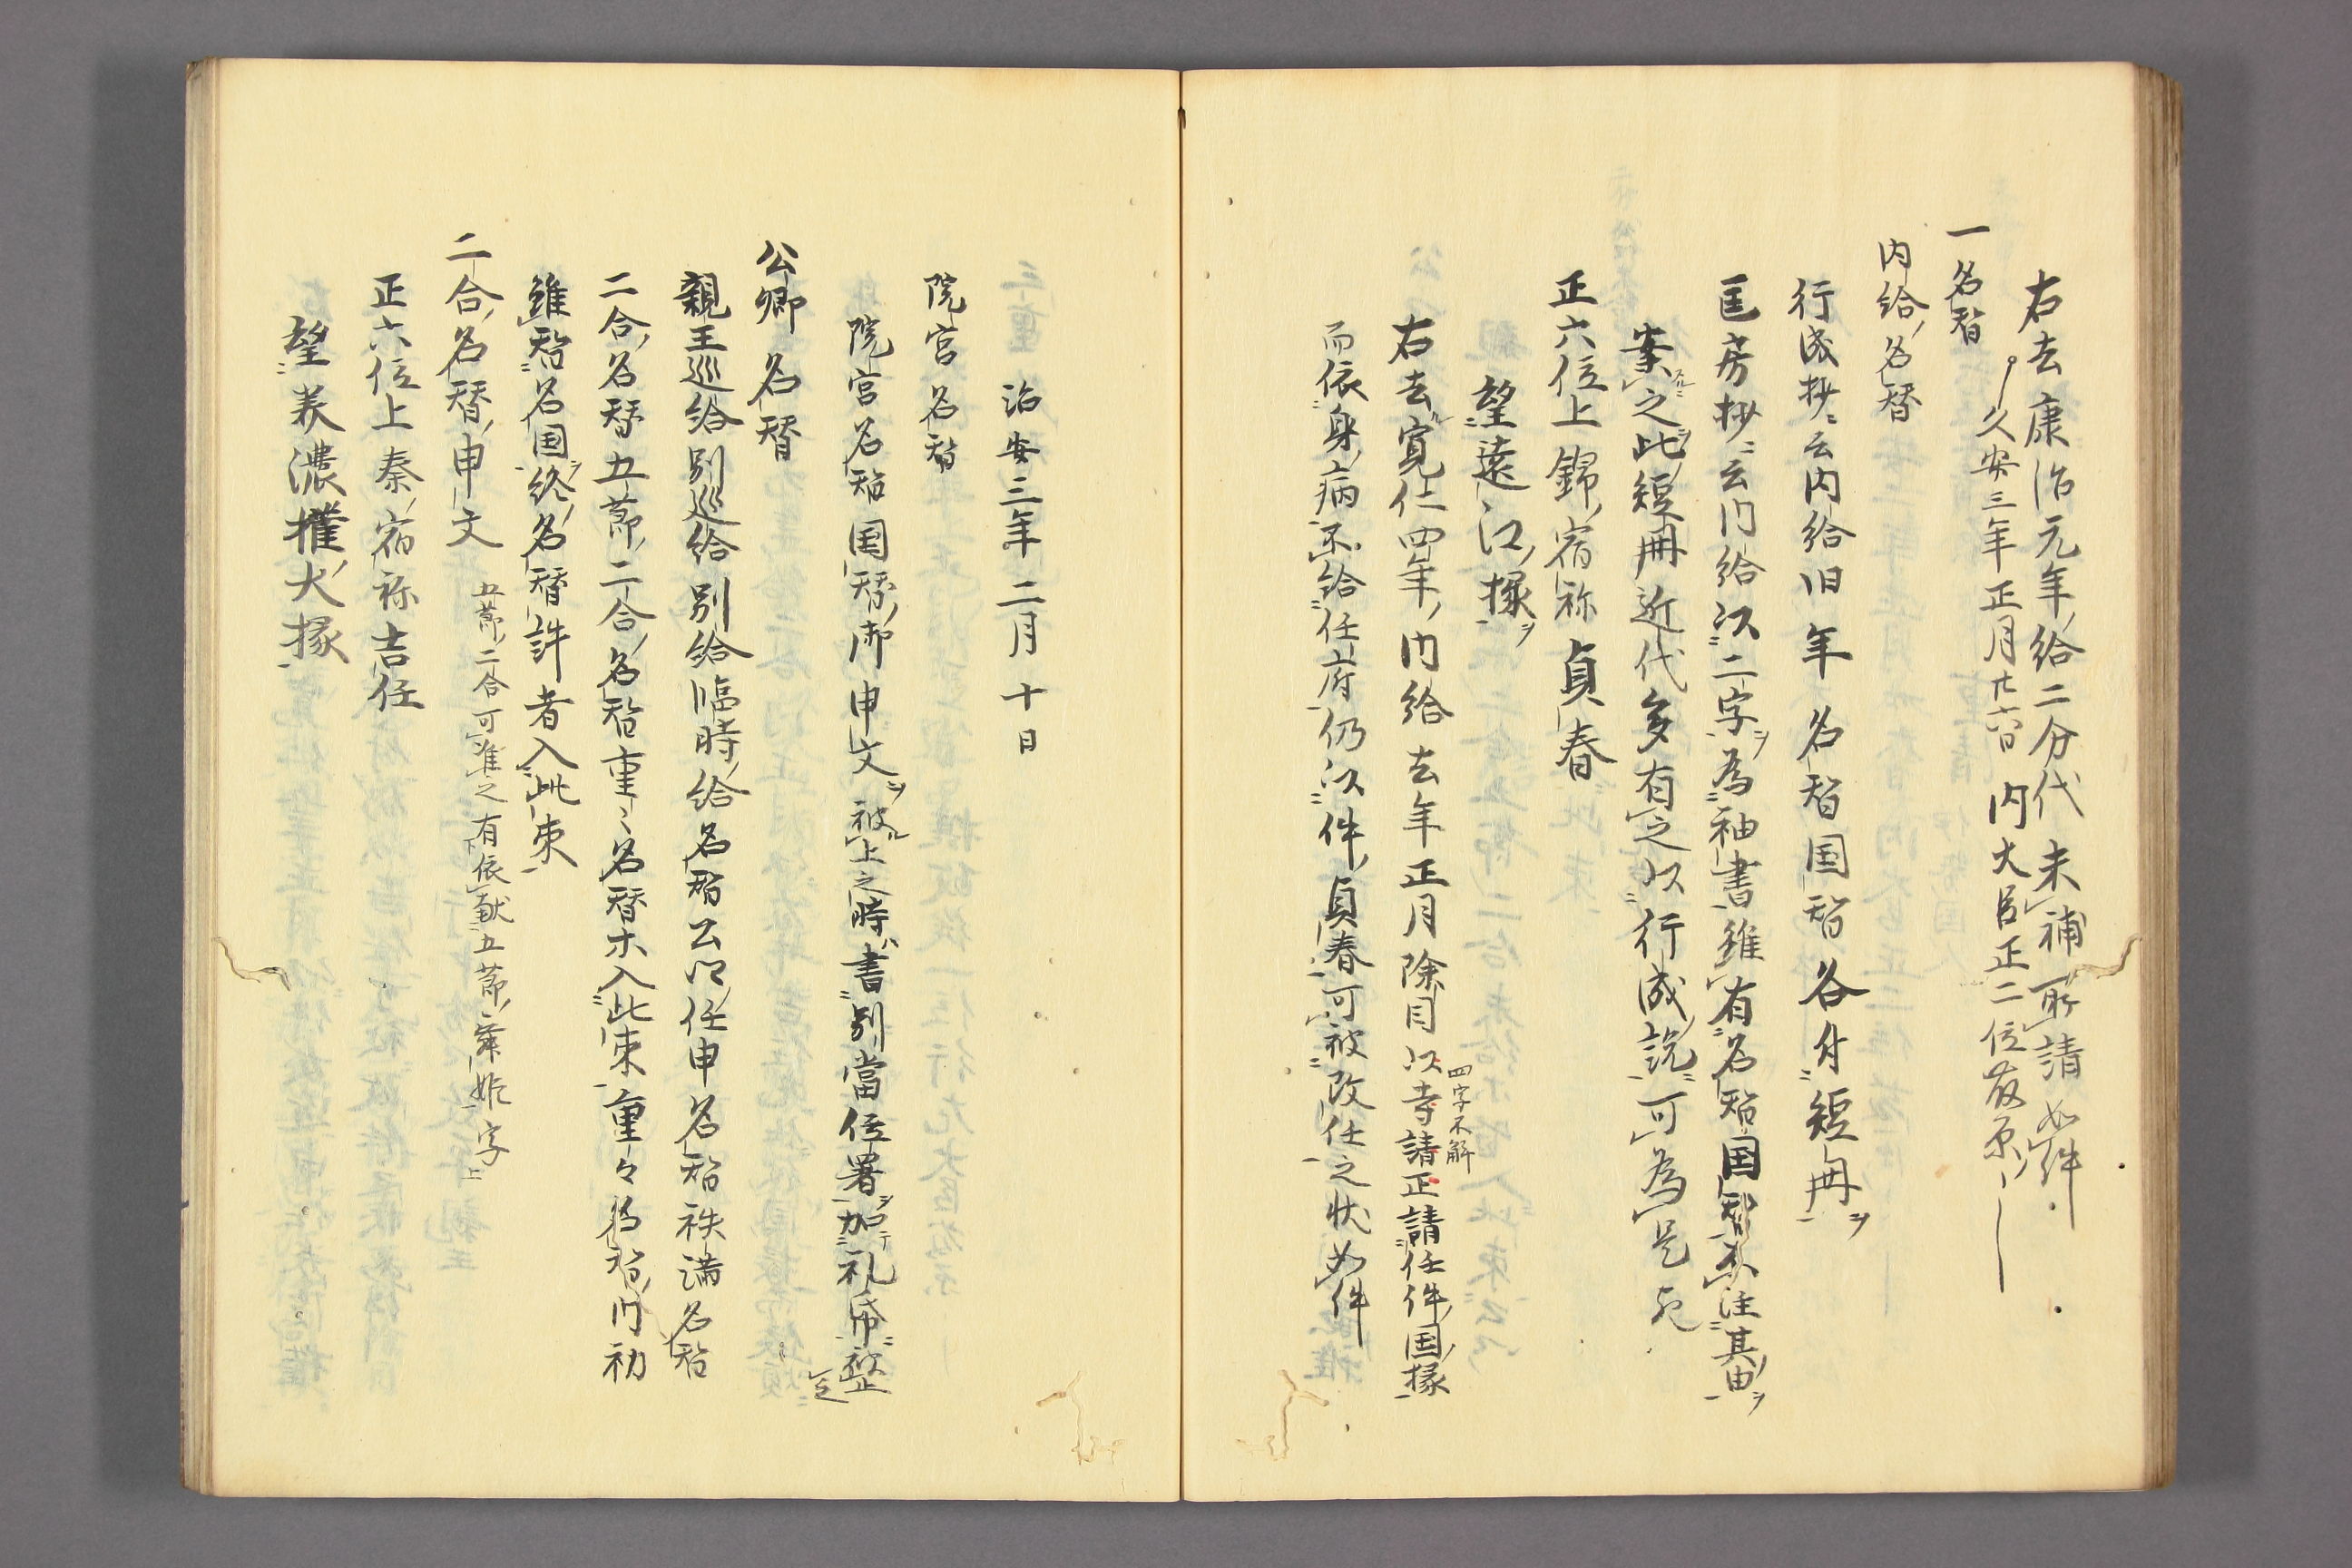 右去康治元年給二分代未補所請如件
久安三年正月廿六日 内大臣正二位藤原
一名替
内給名替
行成抄云内給旧年名替国替各付短冊ヲ
匡房抄云内給以二字ヲ為袖書雖有名替国替不注其由ヲ
案之此短冊近代多有之以行成説可為是
正六位上錦宿祢貞春
望遠江掾ヲ
右去寛仁四年内給去年正月除目以寺請正請任件国掾
四字不解
而依身病不給任符仍以件貞春可被改任之状如件
治安三年二月十日
院宮名替
院宮名替国替御申文ヲ被上之時書別當位署加礼帋
公卿名替
親王巡給別巡給別給臨時給名替公卿任申名替秩満名替
二合名替五節二合名替重〻名替ホ入此束重々名替内初
雖替名国終名替許者入此束
二合名替申文 五節二合可准之有依献五節舞姫字上
正六位上秦宿祢吉任
望美濃權大掾